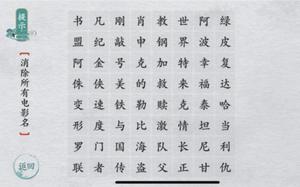 提示
消除所有电影名
返回
书凡刚肖教世阿绿
盟纪敲申钢界波皮
阿金号克加特幸复
侠侠美的救来福达
变速铁勒赎克泰哈
形度与比激森坦当
罗门国海队长正利
联者传盗父丁甘仇